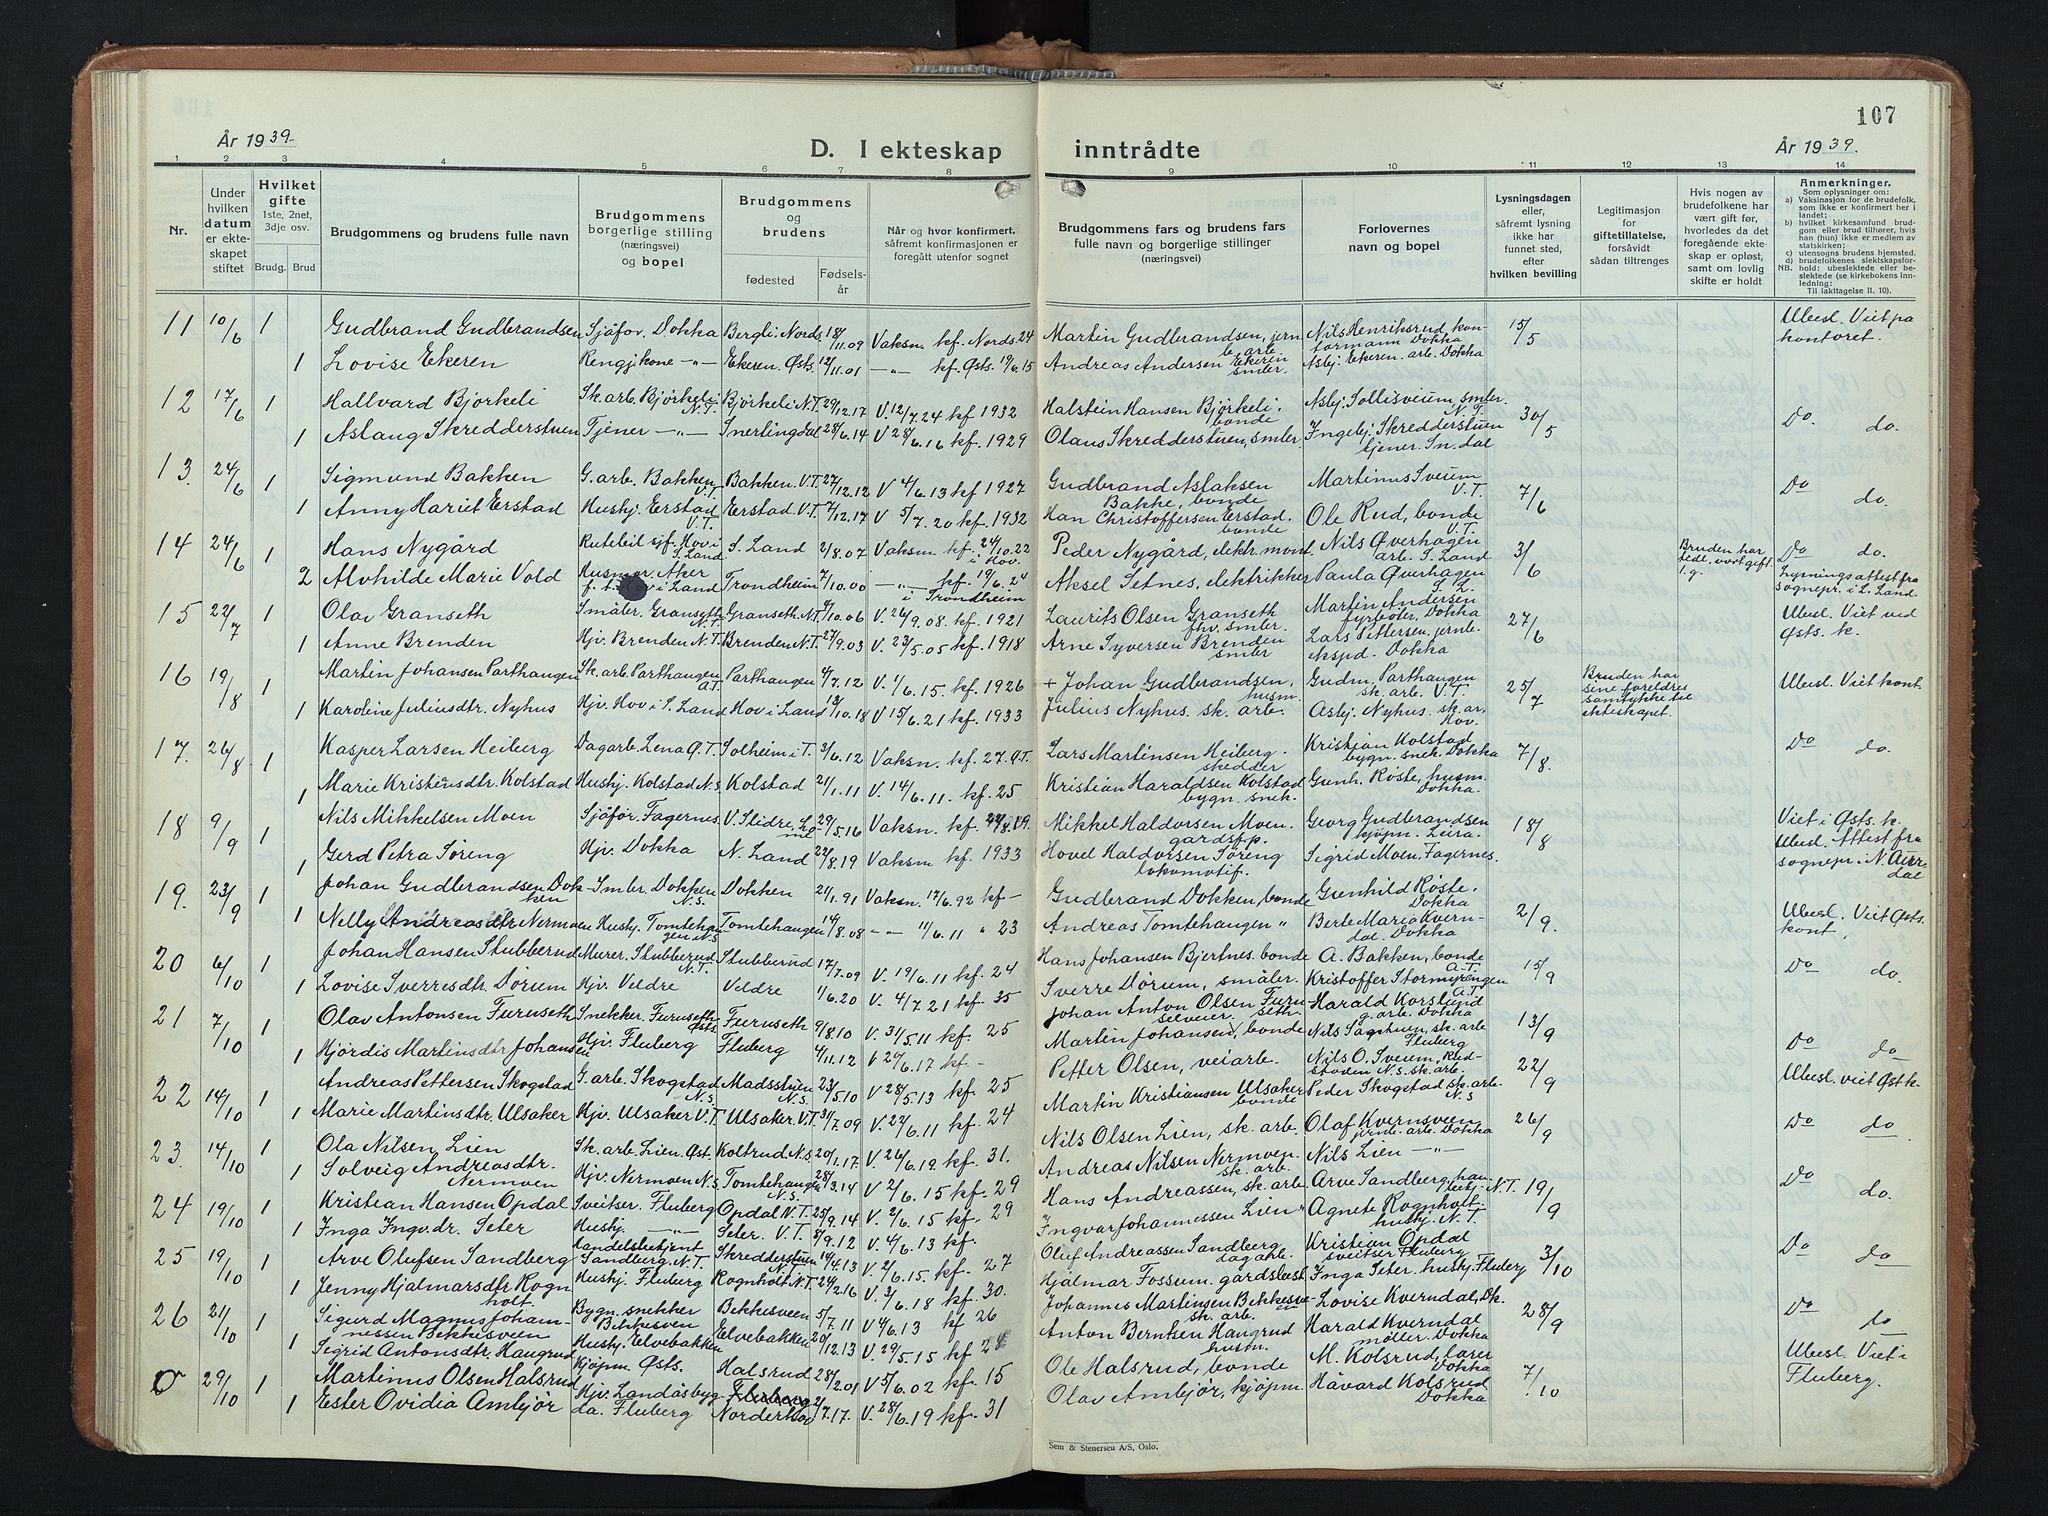 107
År 1939.
D. I ekteskap inntrådte
År 1939.
1 2 3 4 5 6 7 8 9 10 11 12 13 14
Nr.
Under hvilken datum er ekteskapet stiftet
Hvilket gifte 1ste, 2net, 3dje osv.
Brudg. Brud
Brudgommens og brudens fulle navn
Brudgommens borgerlige stilling (næringsvei) og bopel
Brudgommens og brudens
fødested
Fødselsår
Når og hvor konfirmert, såfremt konfirmasjonen er foregått utenfor sognet
Brudgommens fars og brudens fars fulle navn og borgerlige stillinger (næringsvei)
Forlovernes navn og bopel
Lysningsdagen eller, såfremt lysning ikke har funnet sted, efter hvilken bevilling
Legitimasjon for giftetillatelse, forsåvidt sådan tiltrenges
Hvis nogen av brudefolkene har vært gift før, hvorledes da det foregående ekteskap er opløst, samt om lovlig skifte er holdt
Anmerkninger.
Som oplysninger om:
a) Vaksinasjon for de brudefolk, som ikke er konfirmert her i landet;
b) hvilket kirkesamfund brudgom eller brud tilhører, hvis han (hun) ikke er medlem av statskirken;
c) utensogns brudens hjemsted.
d) brudefolkenes slektskapsforhold: ubeslektede eller beslektede (se kirkebokens innledning:
NB.
Til iakttagelse II. 10).
11 10/6 1 Gudbrand Gudbrandsen Sjåfør. Dokka Bergli Nords. 18/11.09 Vaksn. kf. Nords. 24 Martin Gudbrandsen, jernb. arb. Nils Henriksrud kontormann Dokka 15/5 Ubesl. Viet på kontoret.
1 Lovise Ekeren Rengj. kone -"- Ekeren. Østs. 12/11.01 -"- kf. Østs. 19/6.15 Andreas Andersen Ekeren smbr. Asbj. Ekeren. arb. Dokka
12 17/6 1 Hallvard Bjørkeli Sk. arb. Bjørkeli N.T. Bjørkeli N.T. 29/12.17 V. 12/7.24 kf. 1932 Halstein Hansen Bjørkeli. bonde Asbj. Sollisveium, smbr. N.T. 30/5 Do. do.
1 Aslaug Skredderstuen Tjener -"- Snerlingdal 28/6.14 V 28/6.16 kf. 1929 Olaus Skredderstuen, smbr. Ingebj. Skredderstuen tjener. Sn.dal
13. 24/6 1 Sigmund Bakken G. arb. Bakken V.T. Bakken. V.T. 27/12.12 V 4/6.13 kf 1927 Gudbrand Aslaksen Bakke, bonde Martinus Sveum V.T. 7/6 Do do.
1 Anny Hariet Erstad Hushj. Erstad V.T. Erstad V.T. 7/12.17 V 5/7.20 kf. 1932 Han Christoffersen Erstad. bonde Ole Rud, bonde V.T.
14 24/6 1 Hans Nygård Rutebil sjf. Hov i S. Land S. Land 2/8.07 Vaksn. kf. 24/10.22 i Hov. Peder Nygård, elektr. mont. Nils Øverhagen arb. S. Land 3/6 Bruden har tidl. vært gift. Do do.
2 Alvhilde Marie Vold Husmor. Aker Hov i Land Trondheim 7/10.00 -"- kf. 19/6.24 i Trondheim Aksel Setnes, elektrikker Paula Øverhagen S.L. Lysningsattest fra sognepr. i S. Land.
15 22/7 1 Olav Granseth Småbr. Granseth N.T. Granseth. N.T. /10.06 V. 26/9.08. kf. 1921 Laurits Olsen Granseth fhv. smbr. Martin Andersen fyrbøter, Dokka 27/6 Ubesl. Viet ved Østs. k.
1 Anne Brenden Hjv. Brenden N.T. Brenden N.T. 27/9.03 V. 23/5.05 kf. 1918 Arne Syversen Brenden smbr Lars Pettersen. jernb. ekspd. Dokka
16 19/8 1 Martin Johansen Parthaugen Sk. arb. Parthaugen A.T. Parthaugen 4/7.12 V. 1/6.15. kf. 1926 + Johan Gudbrandsen, husm. Gudm. Parthaugen sk. arb. V.T. 25/7 Bruden har sine foreldres samtykke til ekteskapet. Ubesl. Viet kont.
1 Karoline Juliusdtr. Nyhus Hjv. Hov i S. Land Hov i Land 18/10.18 V 15/6.21 kf. 1933 Julius Nyhus. sk. arb. Asbj. Nyhus. sk. ar. Hov.
17. 26/8 1 Kasper Larsen Heiberg Dagarb. Lena Ø.T. Solheim i T. 3/6.12 Vaksn. kf. 27. Ø.T. Lars Martinsen Heiberg. skedder Kristian Kolstad bygn. snek. Dokka 7/8. Do do.
1 Marie Kristiansdtr. Kolstad Hushj. Kolstad N.S. Kolstad 21/1.11 V. 14/6.11. kf. 25 Kristian Haraldsen Kolstad bygn. snek. Gunh. Røste, husm. Dokka.
18 9/9 1 Nils Mikkelsen Moen Sjåfør. Fagernes. V. Slidre, Lomel 29/5.16 Vaksn. kf. Mikkel Haldorsen Moen. gardsfp. Georg Gudbrandsen kjøpm. Leira. 18/8 Viet i Østs. k. Ubesl. Attest fra sognepr. i N. Aurdal
1 Gerd Petra Søreng Hjv. Dokka N. Land 22/8.19 Vaksn kf. 1933 Hovel Haldorsen Søreng lokomotif. Sigrid Moen. Fagernes.
19. 23/9 1 Johan Gudbrandsen Dokken Smbr. Dokken N.S. Dokken 24/1.91 Vaksn. 17/6.92 kf - Gudbrand Dokken, bonde Gunhild Røste. Dokka 2/9. Ubesl. Viet Østs. kont.
1 Nelly Andreasdtr Nermoen Hushj. Tomtehaugen N.S Tomtehaugen 14/8.08 -"- 11/6.11 " 23 Andreas Tomtehaugen " Berte Marie Kverndal. Dokka
20 6/10 1 Johan Hansen Stubberud Murer. Stubberud N.T. Stubberud 17/7.09 V. 19/6.11 kf. 24 Hans Johansen Bjertnes. bonde A. Bakken, bonde A.T. 15/9 Do do.
1 Lovise Sverresdtr. Dørum Hjv. Veldre Veldre 1/6.20 V. 4/7.21 kf. 35 Sverre Dørum, småbr. Kristoffer Stormyrengen A.T.
21 7/10 1 Olav Antonsen Furuseth Snekker. Furuseth Østs. Furuseth 9/8.10 V. 31/5.11 kf. 25 Johan Anton Olsen Furuseth. selveier. Harald Korslund g. arb. Dokka 13/9 Do do
1 Hjørdis Martinsdtr Johansen Hjv. Fluberg Fluberg 4/11.12 V 29/6.17 kf. - Martin Johansen, bonde Nils Sagstuen, sk. arb Fluberg
22 14/10 1 Andreas Pettersen Skogstad G. arb. Skogstad N.S. Madsstuen N.S. 23/5.10 V 28/5.13 kf. 25 Petter Olsen, veiarb. Nils O. Sveum, Rudstaden N.S. sk. arb. 22/9 Ubesl. viet Øst k.
1 Marie Martinsdtr. Ulsaker Hjv. Ulsaker V.T. Ulsaker V.T. 31/7.09 V. 22/6.11 kf. 24 Martin Kristiansen Ulsaker bonde Peder Skogstad sk. arb. N.S
23. 14/10 1 Ola Nilsen Lien Sk. arb. Lien. Øst. Koltrud N.S. 20/1.17. V. 26/6.19. kf. 31. Nils Olsen Lien, sk. arb. Olaf Kvernsveen jernb. arb. Dokka 26/9 Do do
1 Solveig Andreasdtr. Nermoen Hjv. Nermoen N.S. Tomtehaugen N.S. 28/3.14 V 2/6.15 kf. 29 Andreas Nilsen Nermoen. sk. arb. Nils Lien -"-
24 19/10 1 Kristian Hansen Opdal Sveitser. Fluberg Opdal N.T. 25/9.14 V. 2/6.15 kf. 29 Hans Andreassen, sk. arb. Arve Sandberg, handbetj. N.T. 19/9 Do do.
1 Inga Ingv.dr. Seter Hushj. -"- Seter. V.T. 8/9.12 V. 4/6.13 kf. Ingvar Johannessen Lien " Agnete Rognholt. hushj. N.T.
25 19/10 1 Arve Olufsen Sandberg Handelsbetjent Sandberg N.T. Skredderstuen N.T. 14/4.13 V. 2/6.15. kf. 27 Oluf Andreassen Sandberg dagarb. Kristian Opdal sveitser Fluberg 3/10 Do do
1 Jenny Hjalmarsdtr Rognholt. Hushj. Fluberg Rognholt N.T. 24/2.16 V. 3/6.18 kf. 30. Hjalmar Fossum. gårdsbest. Inga Seter. hushj. Fluberg
26 21/10 1 Sigurd Magnus Johannessen Bekkesveen Bygn. snekker Bekkesven Bekkesveen 5/7.11 V 4/6.13 kf 26 Johannes Martinsen Bekkesveen sk. arb. Lovise Kverndal, Dk. 28/9 Do do
1 Sigrid Antonsdtr. Haugrud Hushj. Elvebakken Elvebakken 20/12.13 V. 29/5.15 kf. Anton Berntsen Haugrud husm. Harald Kverndal møller. Dokka
29/10 1 Martinus Olsen Halsrud Kjøpm. Østs. Halsrud 28/12.01 V 5/6.02 kf. 15 Ole Halsrud, bonde M. Kolsrud, lærer Dokka 7/10 Ubesl. Viet i Fluberg.
1 Ester Ovidia Ambjør Hjv. Landåsbygda. Fluberg Fluberg Norderhov 2/7.17. V. 28/6.19 kf. 31 Olav Ambjør, kjøpm. Håvard Kolsrud Dokka
Sem & Stenersen A/S, Oslo.